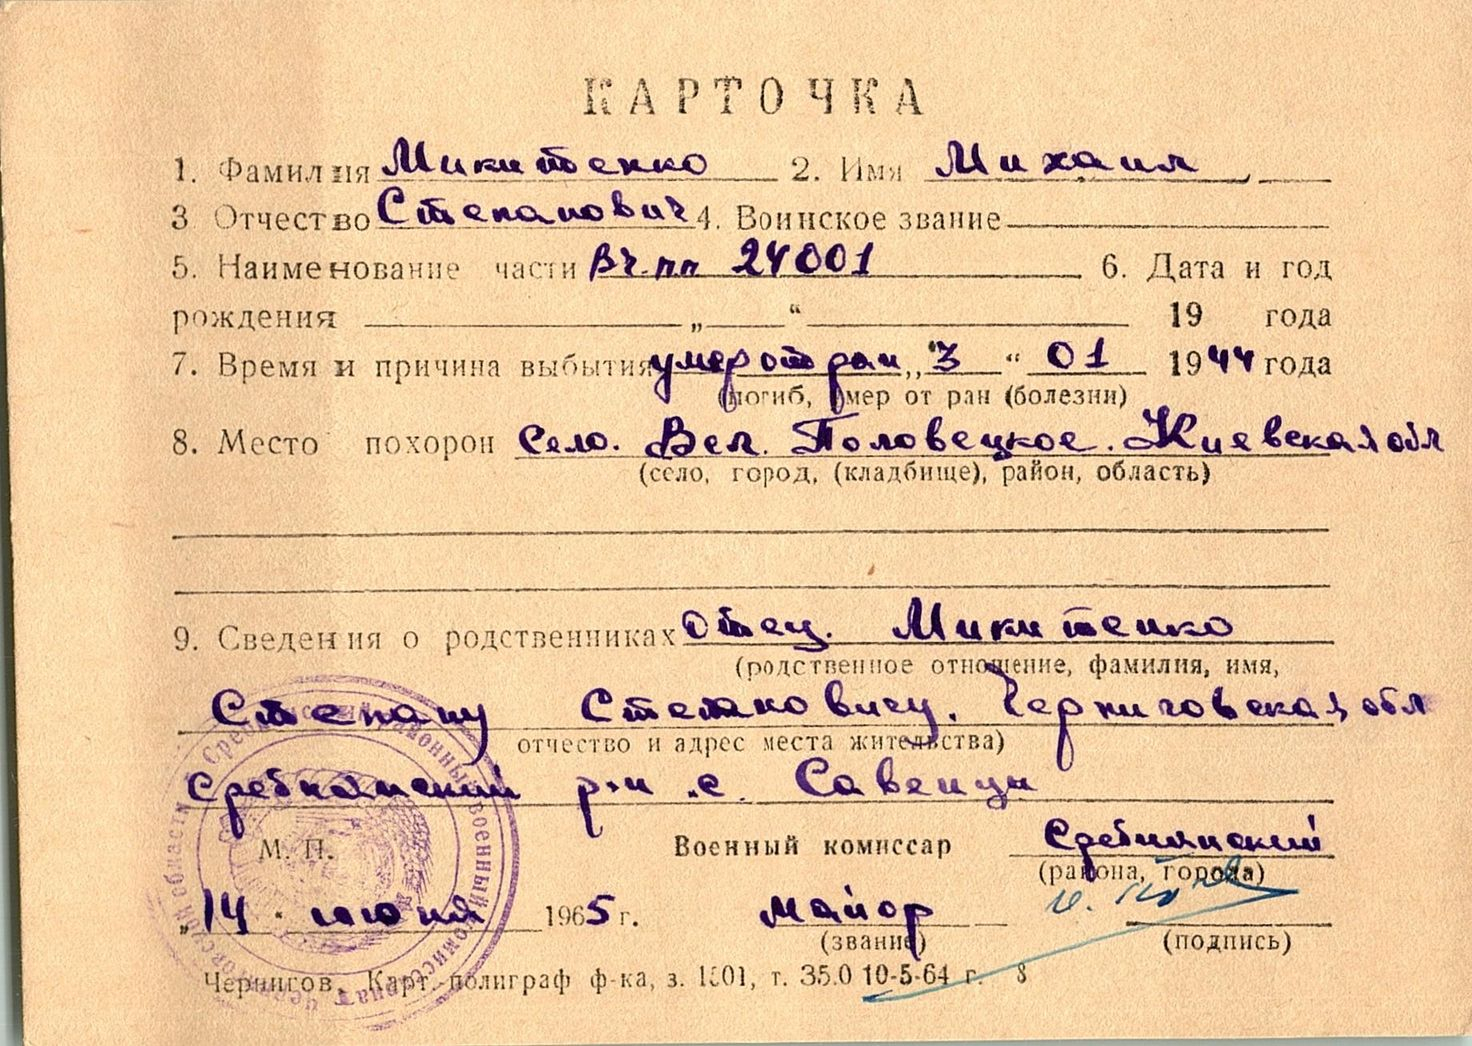 КАРТОЧКА
1. Фамилия Микитенко 2. Имя Михаил
3 Отчество Степанович 4. Воинское звание
5. Наименование части вч.пп 24001 6. Дата и год
рождения „ “ 19 года
7. Время и причина выбытия умер от ран „3“ 01 1944 года
(погиб, умер от ран (болезни)
8. Место похорон Село. Вел. Половецкое. Киевская обл
(село, город, (кладбище), район, область)
9. Сведения о родственниках Отец. Микитенко
(родственное отношение, фамилия, имя,
Степану Степановичу. Черниговская обл
отчество и адрес места жительства)
Сребнянский р-н .с. Савенцы
М. П. Военный комиссар Сребнянский
(района, города)
„14“ июня 1965 г. майор
(звание) (подпись)
Чернигов, Карт.-полиграф ф-ка, з. 1501, т. 35.0 10-5-64 г. 8